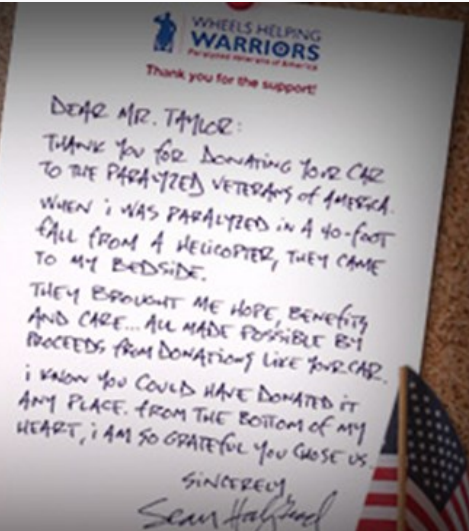 WHEELS HELPING
WARRIORS
Paralyzed Veterans of America
Thank you for the support!
DEAR MR. TAYLOR:
THANK YOU FOR DONATING YOUR CAR
TO THE PARALYZED VETERANS of AMERICA.
WHEN i WAS PARALYZED IN A 40-FOOT
FALL FROM A HELICOPTER, THEY CAME
TO MY BEDSIDE.
THEY BROUGHT ME HOPE, BENEFITS
AND CARE... ALL MADE POSSIBLE BY
PROCEEDS FROM DONATIONS LIKE YOUR CAR.
i KNOW YOU COULD HAVE DONATED IT
ANY PLACE. FROM THE BOTTOM OF MY
HEART, i AM SO GRATEFUL YOU CHOSE US.
SINCERELY
Sean